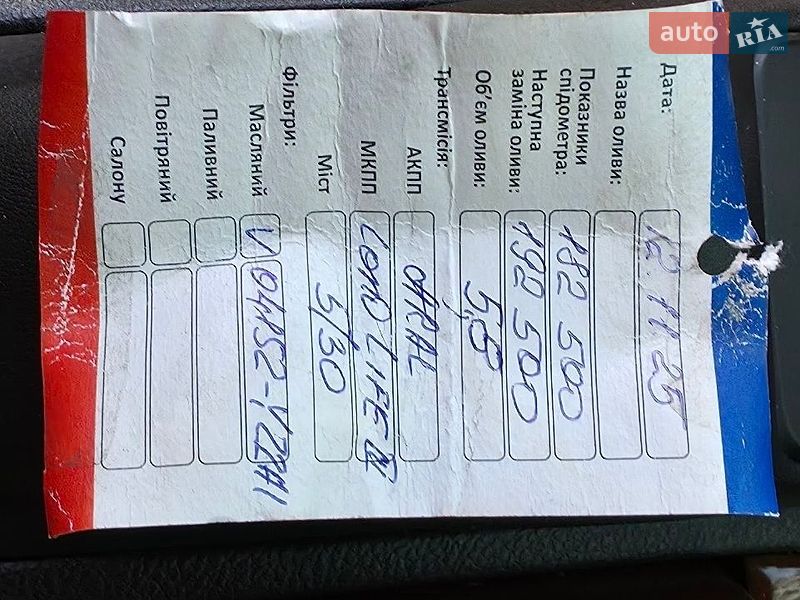 auto RIA .com
Дата: 12.11 25
Назва оливи:
Показники спідометра: 182 500
Наступна заміна оливи: 192 500
Об'єм оливи: 5,5
Трансмісія:
АКПП ARAL
МКПП LONG LIFE III
Міст 5/30
Фільтри:
Масляний V
Паливний
Повітряний
Салону